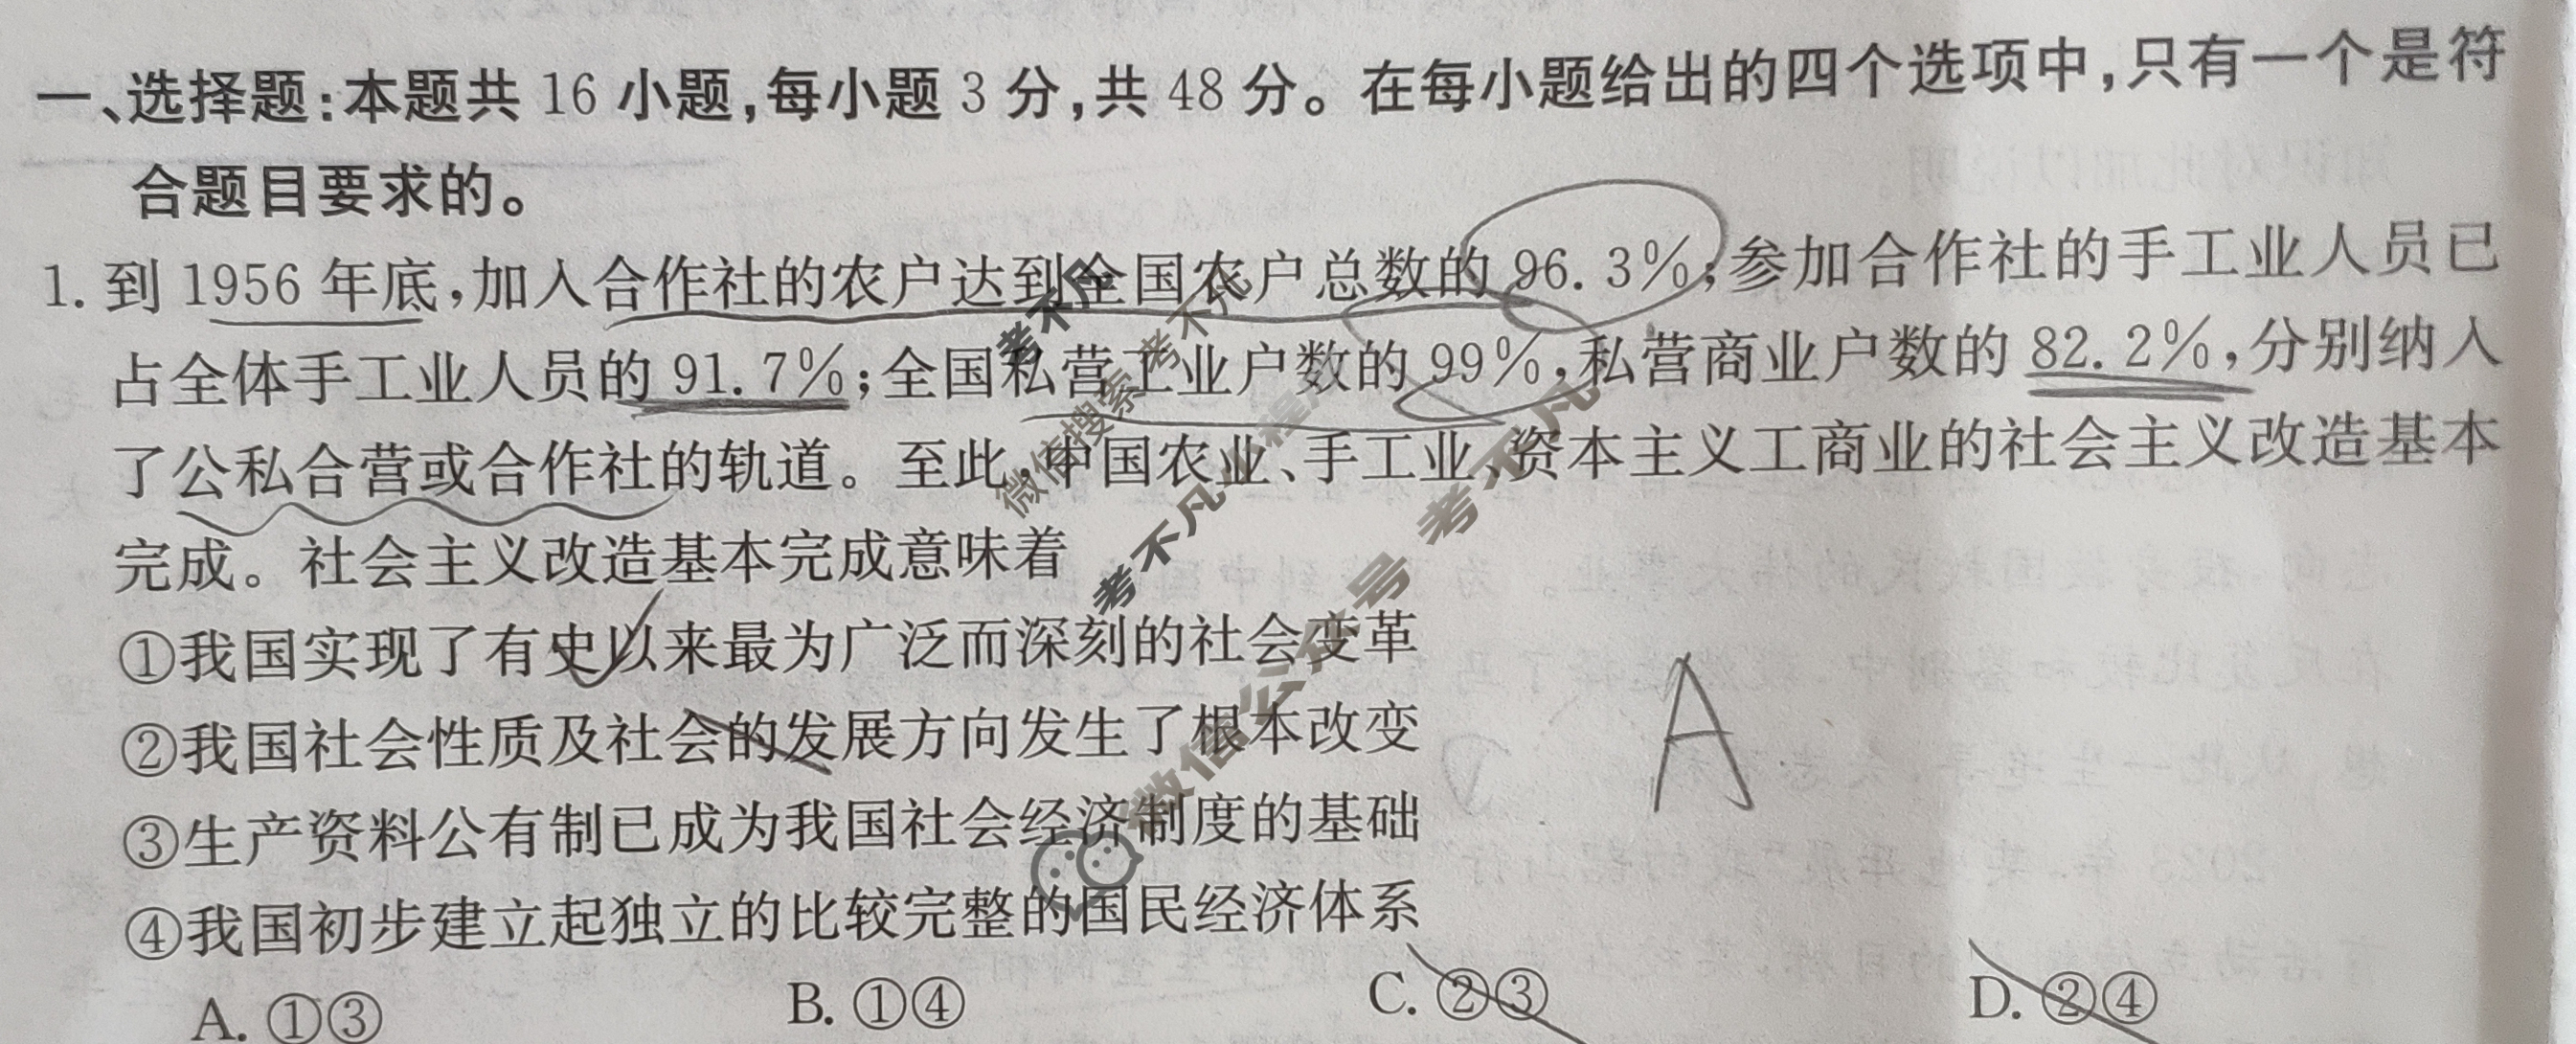 一、选择题：本题共 16 小题，每小题 3 分，共 48 分。在每小题给出的四个选项中，只有一个是符
合题目要求的。
1. 到 1956 年底，加入合作社的农户达到全国农户总数的 96.3%；参加合作社的手工业人员已
占全体手工业人员的 91.7%；全国私营工业户数的 99%，私营商业户数的 82.2%，分别纳入
了公私合营或合作社的轨道。至此，中国农业、手工业、资本主义工商业的社会主义改造基本
完成。社会主义改造基本完成意味着
①我国实现了有史以来最为广泛而深刻的社会变革
②我国社会性质及社会的发展方向发生了根本改变
③生产资料公有制已成为我国社会经济制度的基础
④我国初步建立起独立的比较完整的国民经济体系
A. ①③ B. ①④ C. ②③ D. ②④
A
考不凡
微信搜索 考不凡
考不凡小程序
微信公众号 考不凡